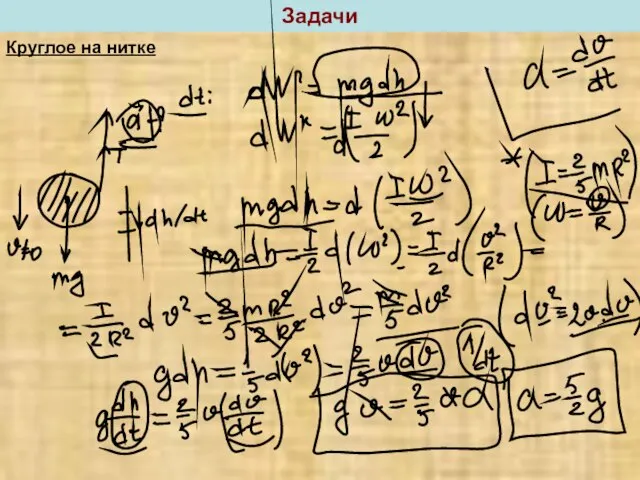 Задачи
Круглое на нитке
dt:
dWᵖ = mgdh
a = dv/dt
dWᵏ = d(I w²/2)
* (I = 2/5 mR²)
(w = v/R)
dh/dt
mgdh = d(Iw²/2)
v≠0
mg
mgdh = I/2 d(w²) = I/2 d(v²/R²) =
= I/2R² dv² = 2/5 mR²/2R² dv² = m/5 dv²
(dv² = 2vdv)
gdh = 1/5 d(v²) = 2/5 v dv 1/dt
g dh/dt = 2/5 v(dv/dt)
g v = 2/5 v a
a = 5/2 g